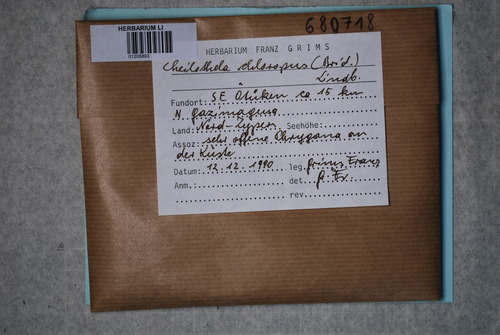 680718
HERBARIUM LI
01205893
HERBARIUM FRANZ GRIMS
Cheilothela chloropus (Brid.)
Lindb.
Fundort: SE Küste ca 15 km
N Gazimağusa
Land: Nord-Zypern Seehöhe:
Assoz: sehr offene Phrygana an
der Küste
Datum: 12.12.1990 leg. Grims Franz
Anm.: det. Gr. Fr.
rev.